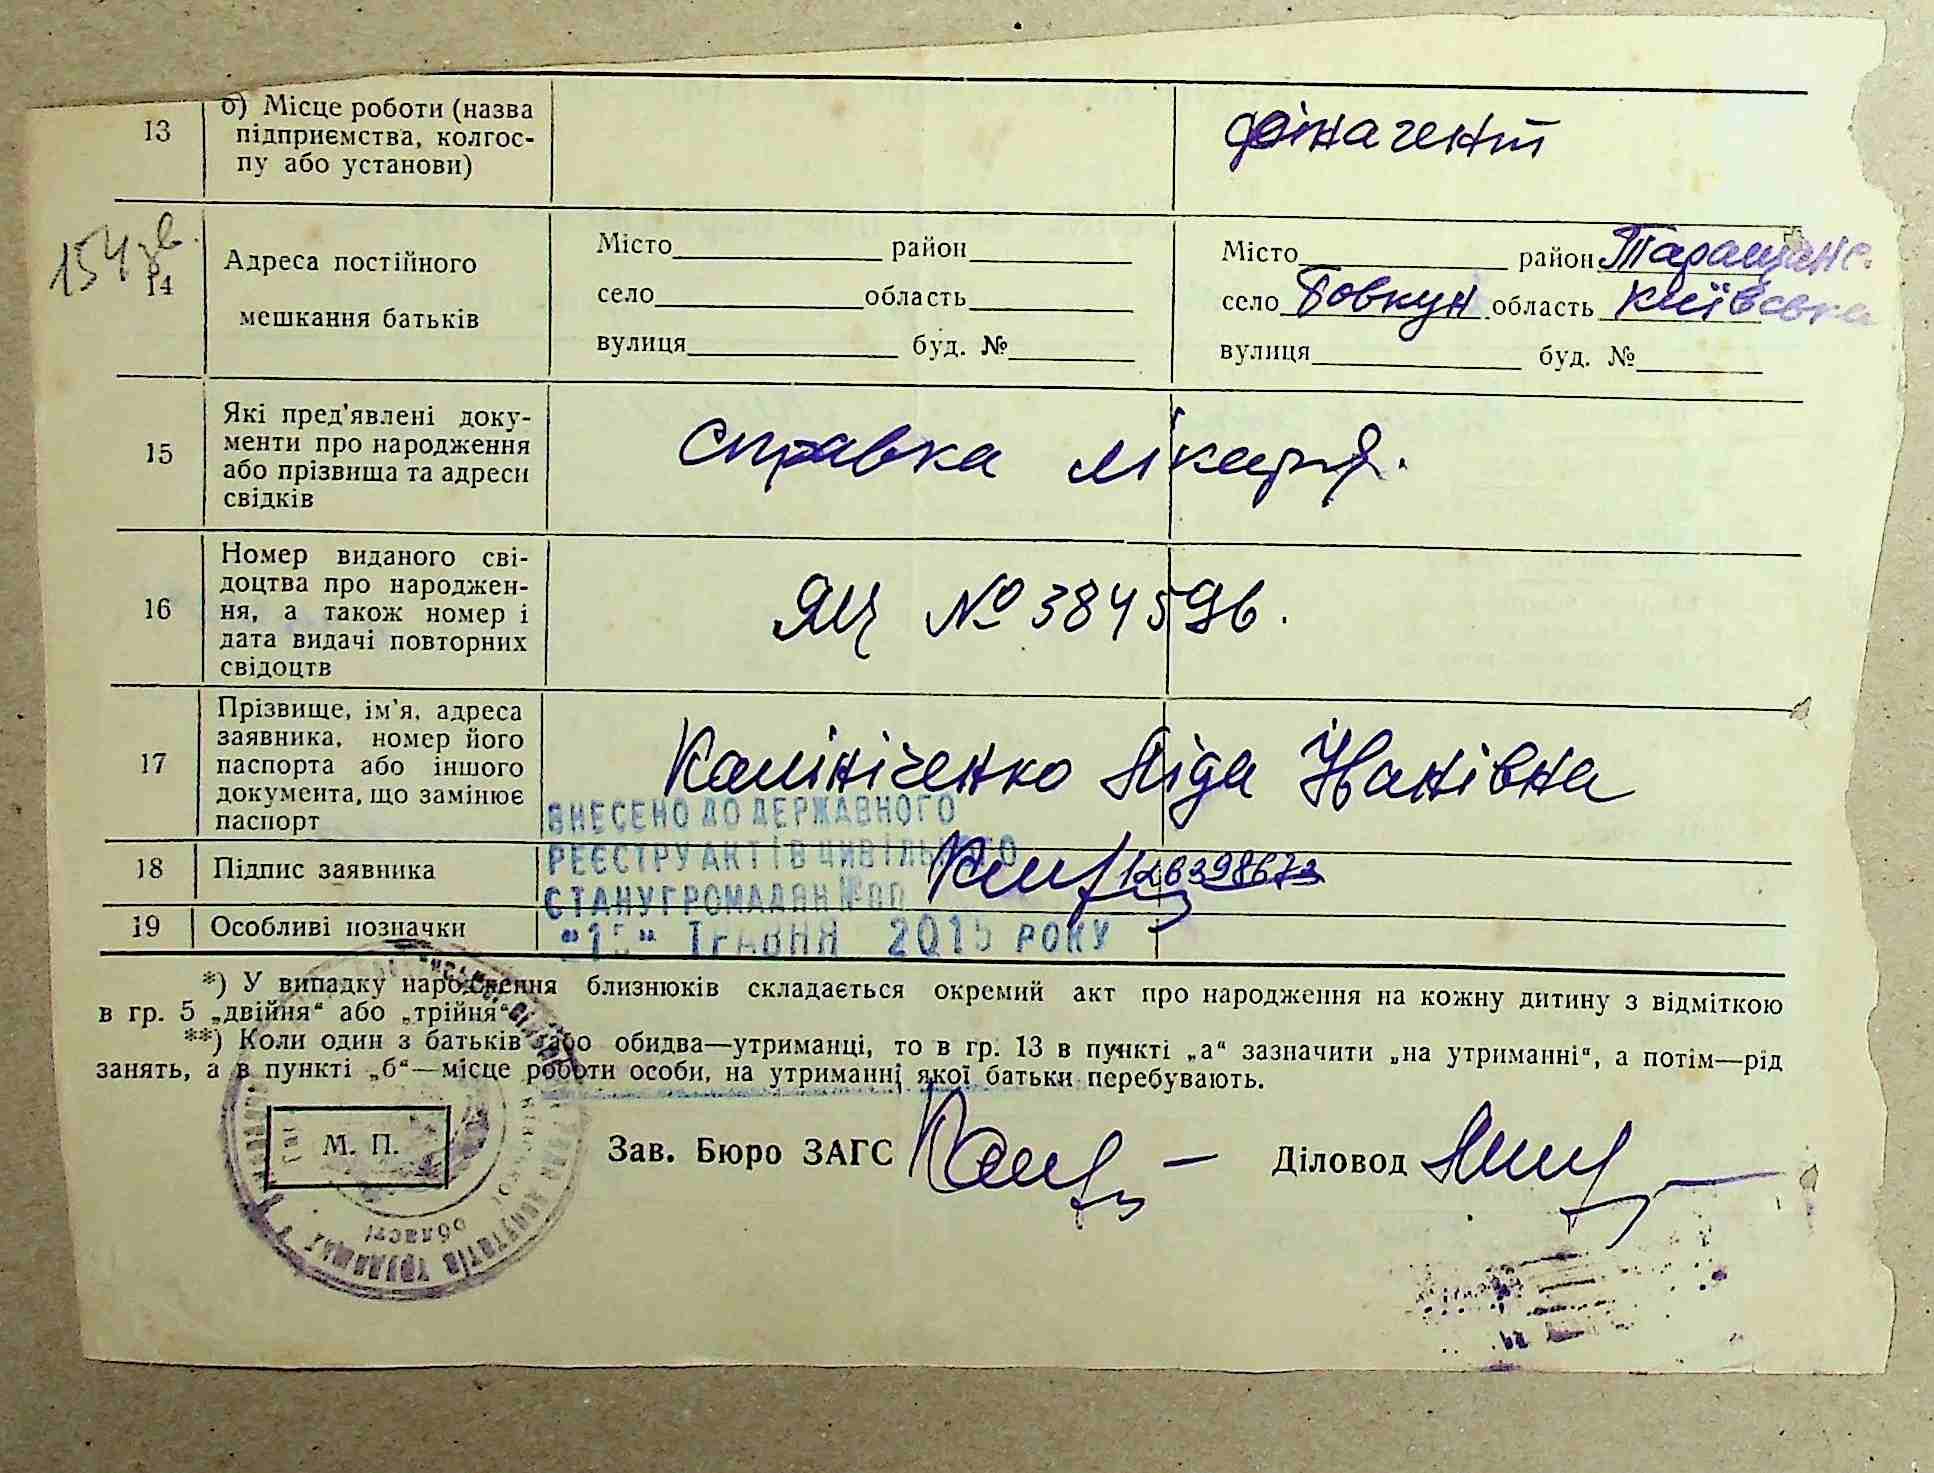 13
б) Місце роботи (назва
підприємства, колгос-
пу або установи)
фінагент
154
14
Адреса постійного
мешкання батьків
Місто район
село область
вулиця буд. №
Місто район Таращанс.
село Ковкун область Київська
вулиця буд. №
15
Які пред'явлені доку-
менти про народження
або прізвища та адреси
свідків
справка лікаря.
16
Номер виданого сві-
доцтва про народжен-
ня, а також номер і
дата видачі повторних
свідоцтв
ЯЦ № 384596.
17
Прізвище, ім'я, адреса
заявника, номер його
паспорта або іншого
документа, що замінює
паспорт
Калініченко Ліда Іванівна
ВНЕСЕНО ДО ДЕРЖАВНОГО
РЕЄСТРУ АКТІВ ЦИВІЛЬНОГО
СТАНУ ГРОМАДЯН №
126398673
"15" ТРАВНЯ 2015 РОКУ
18
Підпис заявника
19
Особливі позначки
*) У випадку народження близнюків складається окремий акт про народження на кожну дитину з відміткою
в гр. 5 „двійня“ або „трійня“.
**) Коли один з батьків або обидва—утриманці, то в гр. 13 в пункті „а“ зазначити „на утриманні“, а потім—рід
занять, а в пункті „б“—місце роботи особи, на утриманні якої батьки перебувають.
М. П.
Зав. Бюро ЗАГС
Діловод
депутатів трудящих
області